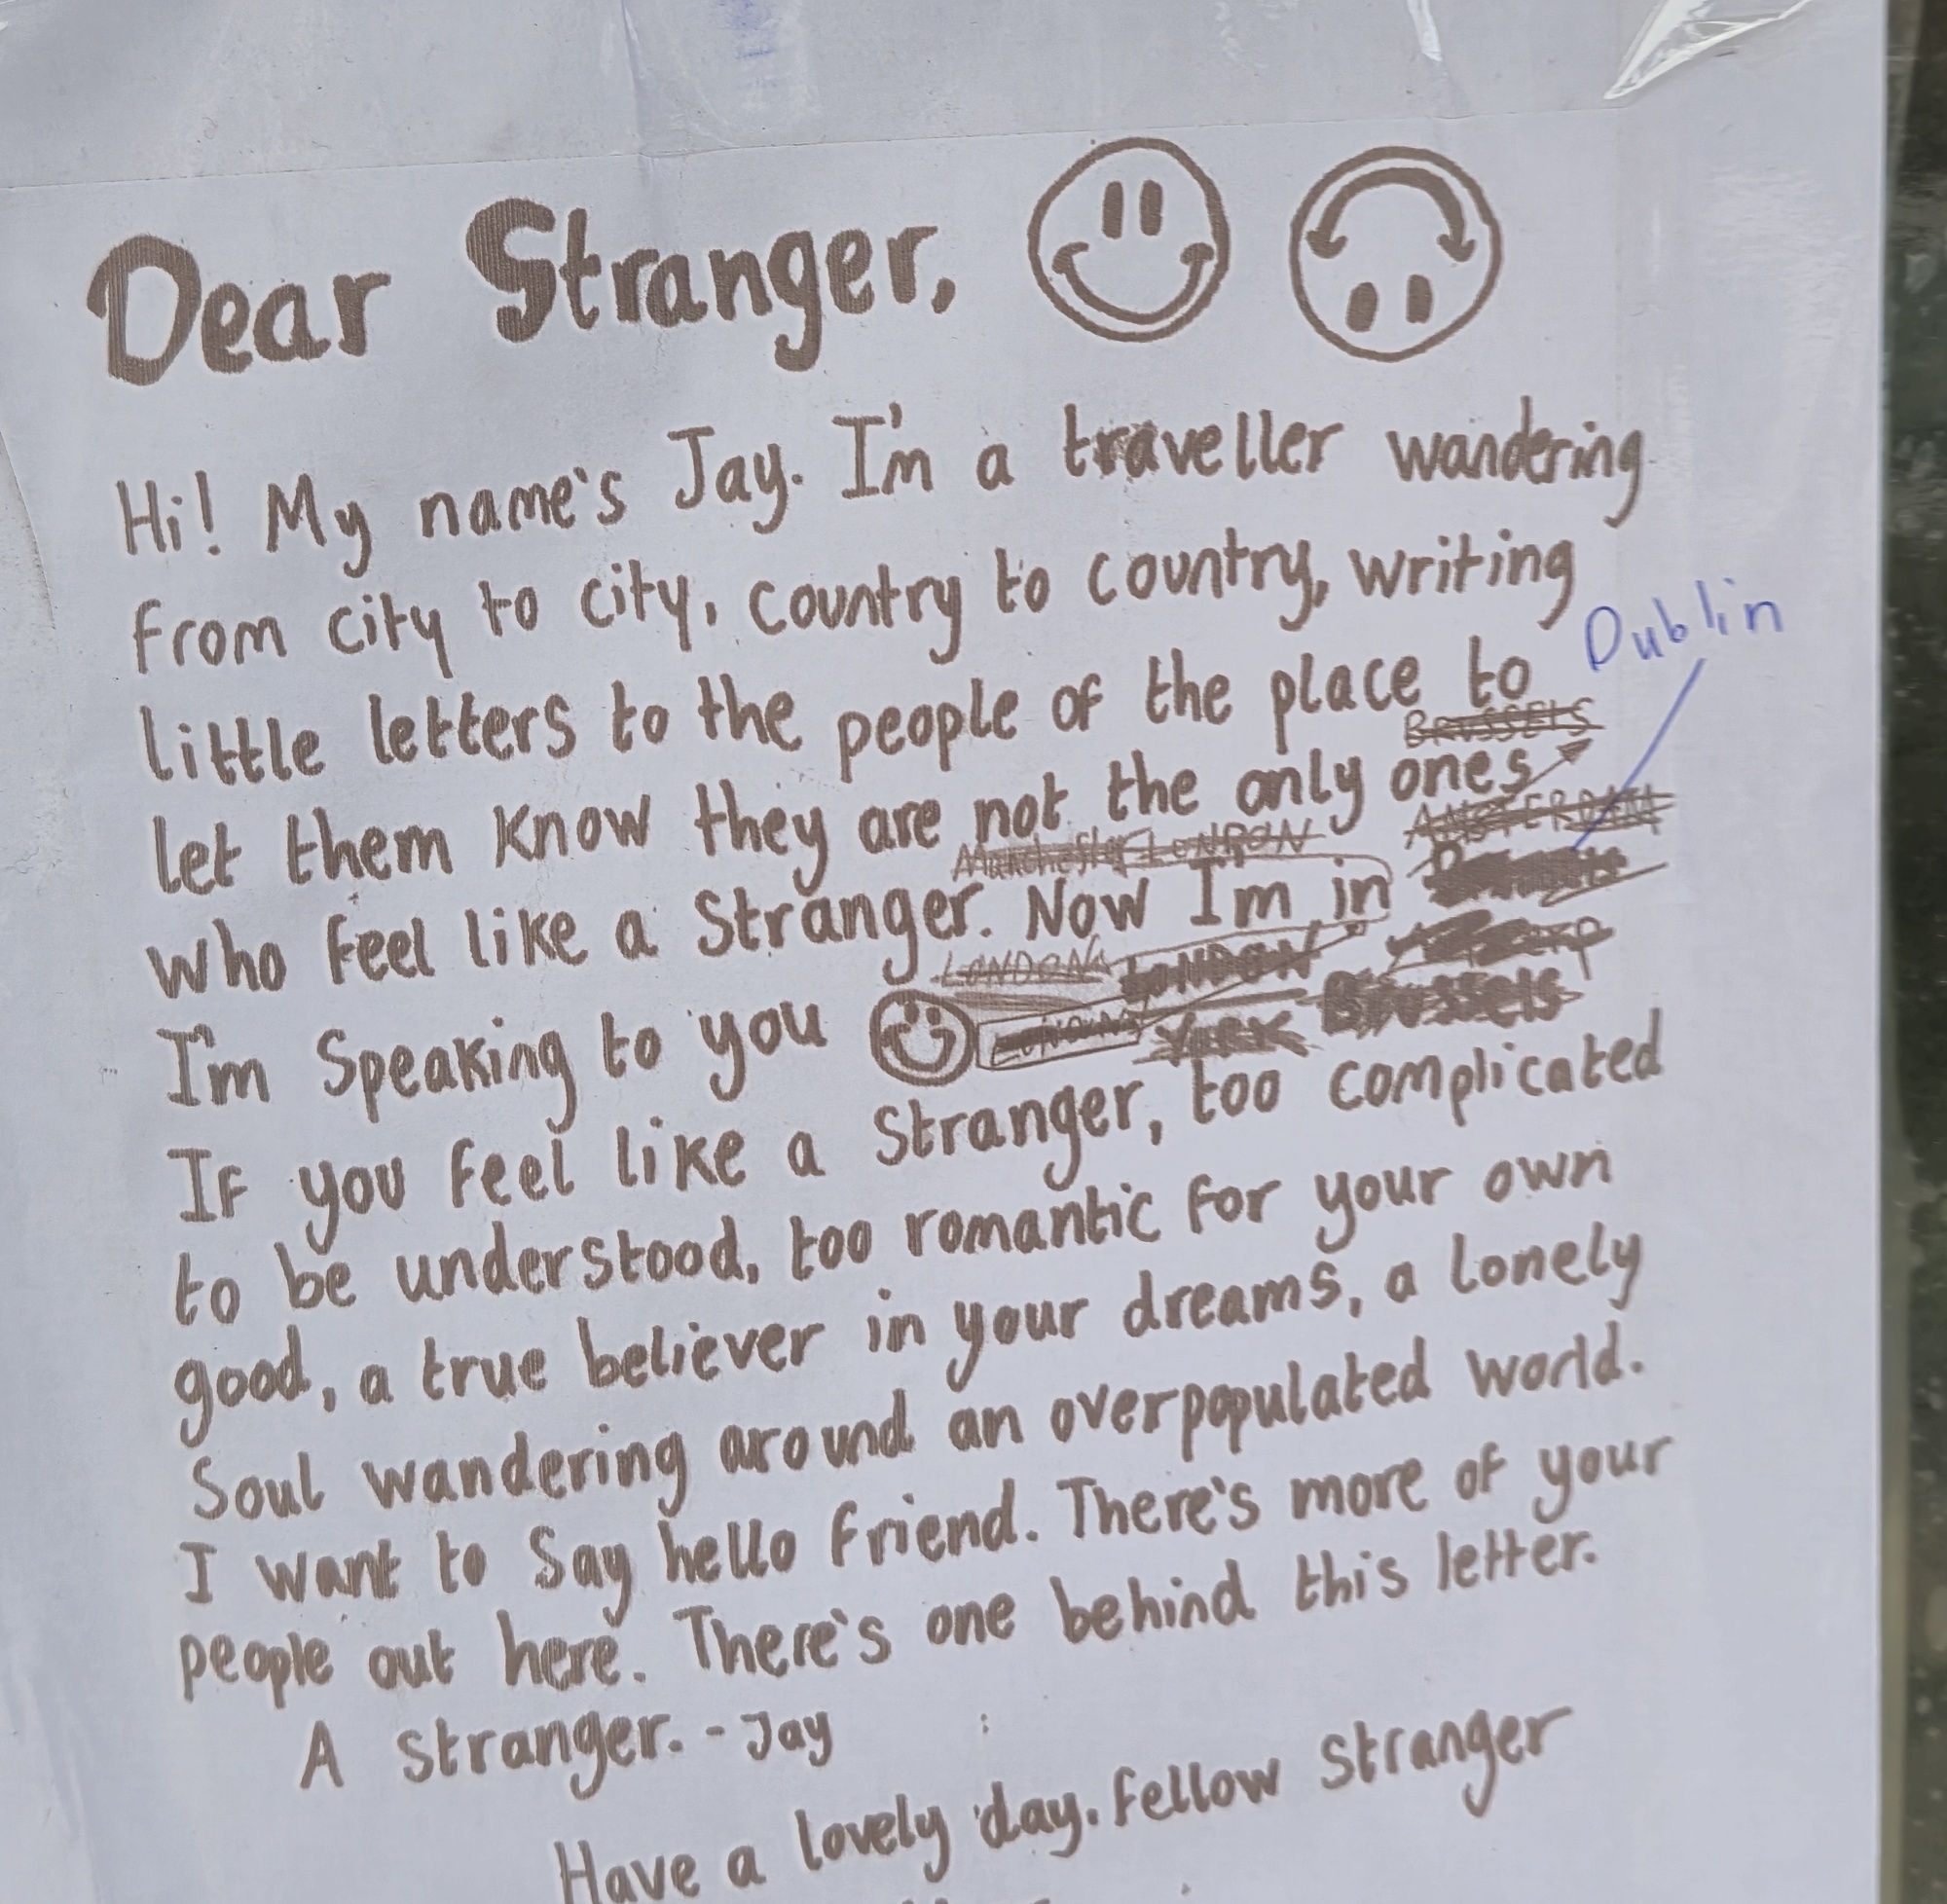 Dear Stranger,
Hi! My name's Jay. I'm a traveller wandering
from city to city, country to country, writing
Dublin
little letters to the people of the place to
BRUSSELS
let them know they are not the only ones
AMSTERDAM
Manchester LONDON
who feel like a Stranger. Now I'm in
LONDON LONDON
I'm Speaking to you
LONDON York Brussels
If you feel like a Stranger, too complicated
to be understood, too romantic for your own
good, a true believer in your dreams, a lonely
Soul wandering around an overpopulated world.
I want to Say hello friend. There's more of your
people out here. There's one behind this letter.
A Stranger. - Jay
Have a lovely day. Fellow Stranger